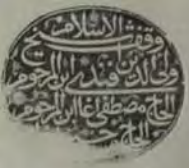 وقف شيخ الاسلام
ولى الدين افندى ابن المرحوم
الحاج مصطفى اغا ابن المرحوم
الحاج حسين